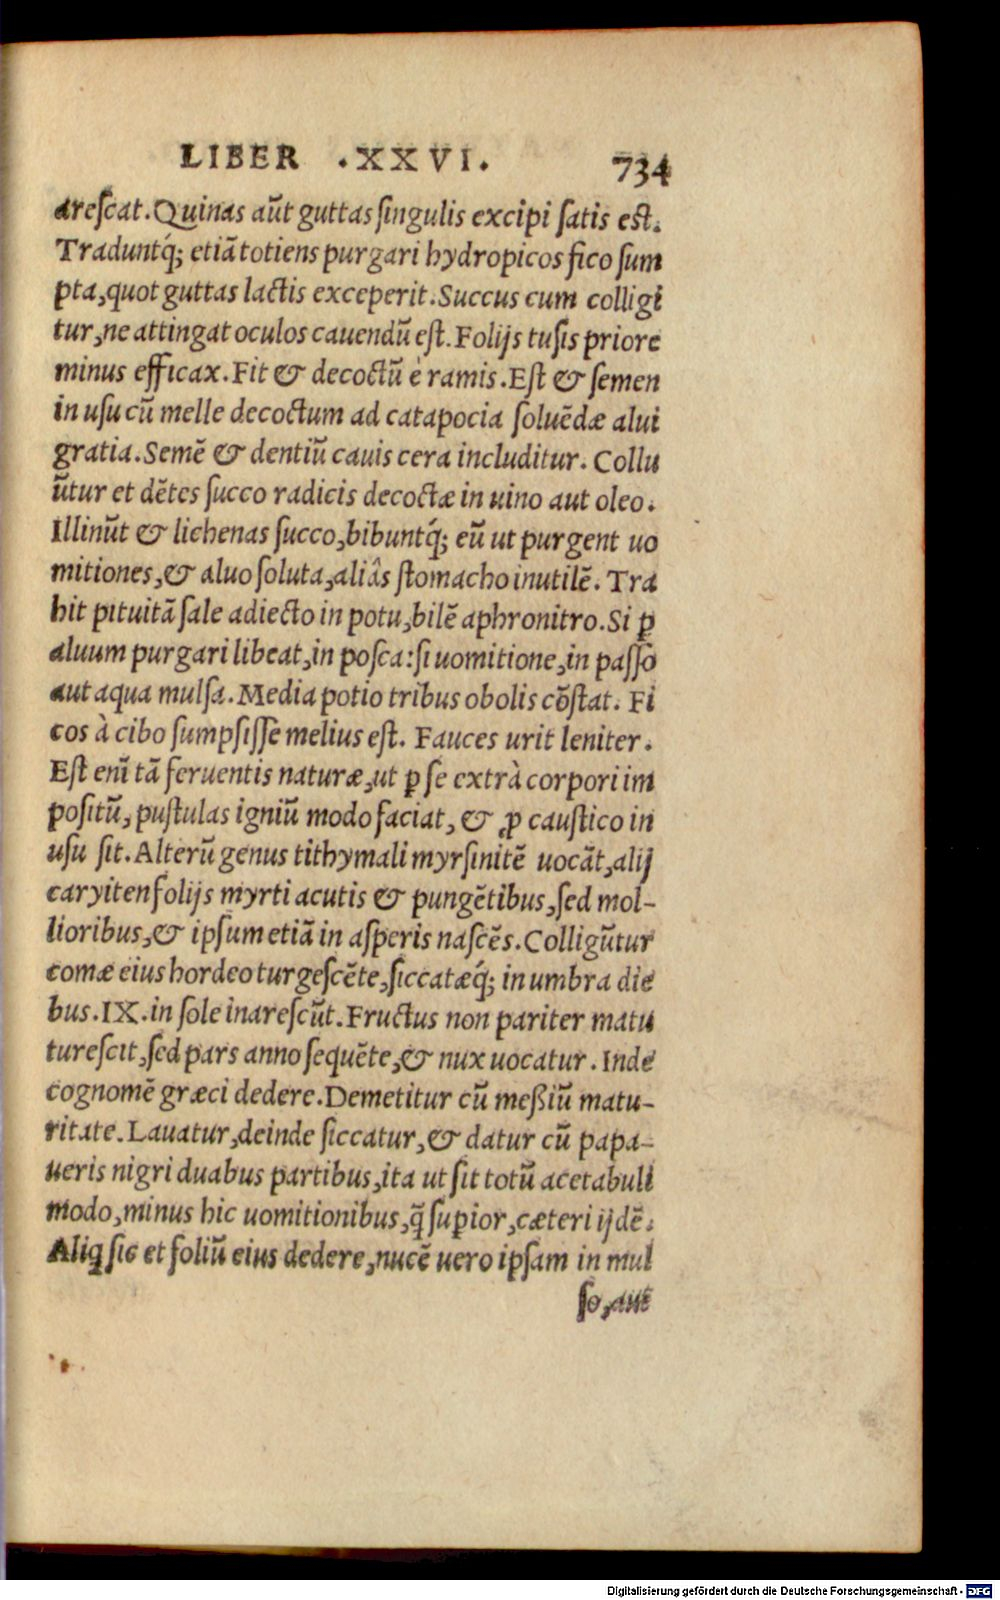 LIBER .XXVI. 734
areſcat.Quinas aũt guttas ſingulis excipi ſatis eſt.
Traduntq́; etiã totiens purgari hydropicos fico ſum
pta,quot guttas lactis exceperit.Succus cum colligi
tur,ne attingat oculos cauendũ eſt.Folijs tuſis priore
minus efficax.Fit & decoctũ è ramis.Eſt & ſemen
in uſu cũ melle decoctum ad catapocia ſoluẽdæ alui
gratia.Semẽ & dentiũ cauis cera includitur. Collu
ũtur et dẽtes ſucco radicis decoctæ in uino aut oleo.
Illinũt & lichenas ſucco,bibuntq́; eũ ut purgent uo
mitiones,& aluo ſoluta,aliâs ſtomacho inutilẽ. Tra
hit pituitã ſale adiecto in potu,bilẽ aphronitro.Si ꝑ
aluum purgari libeat,in poſca:ſi uomitione,in paſſo
aut aqua mulſa.Media potio tribus obolis cõſtat. Fi
cos à cibo ſumpſiſſe melius eſt. Fauces urit leniter.
Eſt enĩ tã feruentis naturæ,ut ꝑ ſe extrà corpori im
poſitũ, puſtulas igniũ modo faciat, & ꝓ cauſtico in
uſu ſit.Alterũ genus tithymali myrſinitẽ uocãt,alij
caryiten folijs myrti acutis & pungẽtibus,ſed mol-
lioribus,& ipſum etiã in aſperis naſcẽs.Colligũtur
comæ eius hordeo turgeſcẽte,ſiccatæq́; in umbra die
bus.IX.in ſole inareſcũt.Fructus non pariter matu
tureſcit,ſed pars anno ſequẽte,& nux uocatur.Inde
cognomẽ græci dedere.Demetitur cũ meßiũ matu-
ritate.Lauatur,deinde ſiccatur,& datur cũ papa-
ueris nigri duabus partibus,ita ut ſit totũ acetabuli
modo,minus hic uomitionibus,q̃ ſuperior,cæteri ijdẽ.
Aliq ſic et foliũ eius dedere,nucẽ uero ipſam in mul
ſo,aut
Digitalisierung gefördert durch die Deutsche Forschungsgemeinschaft - DFG